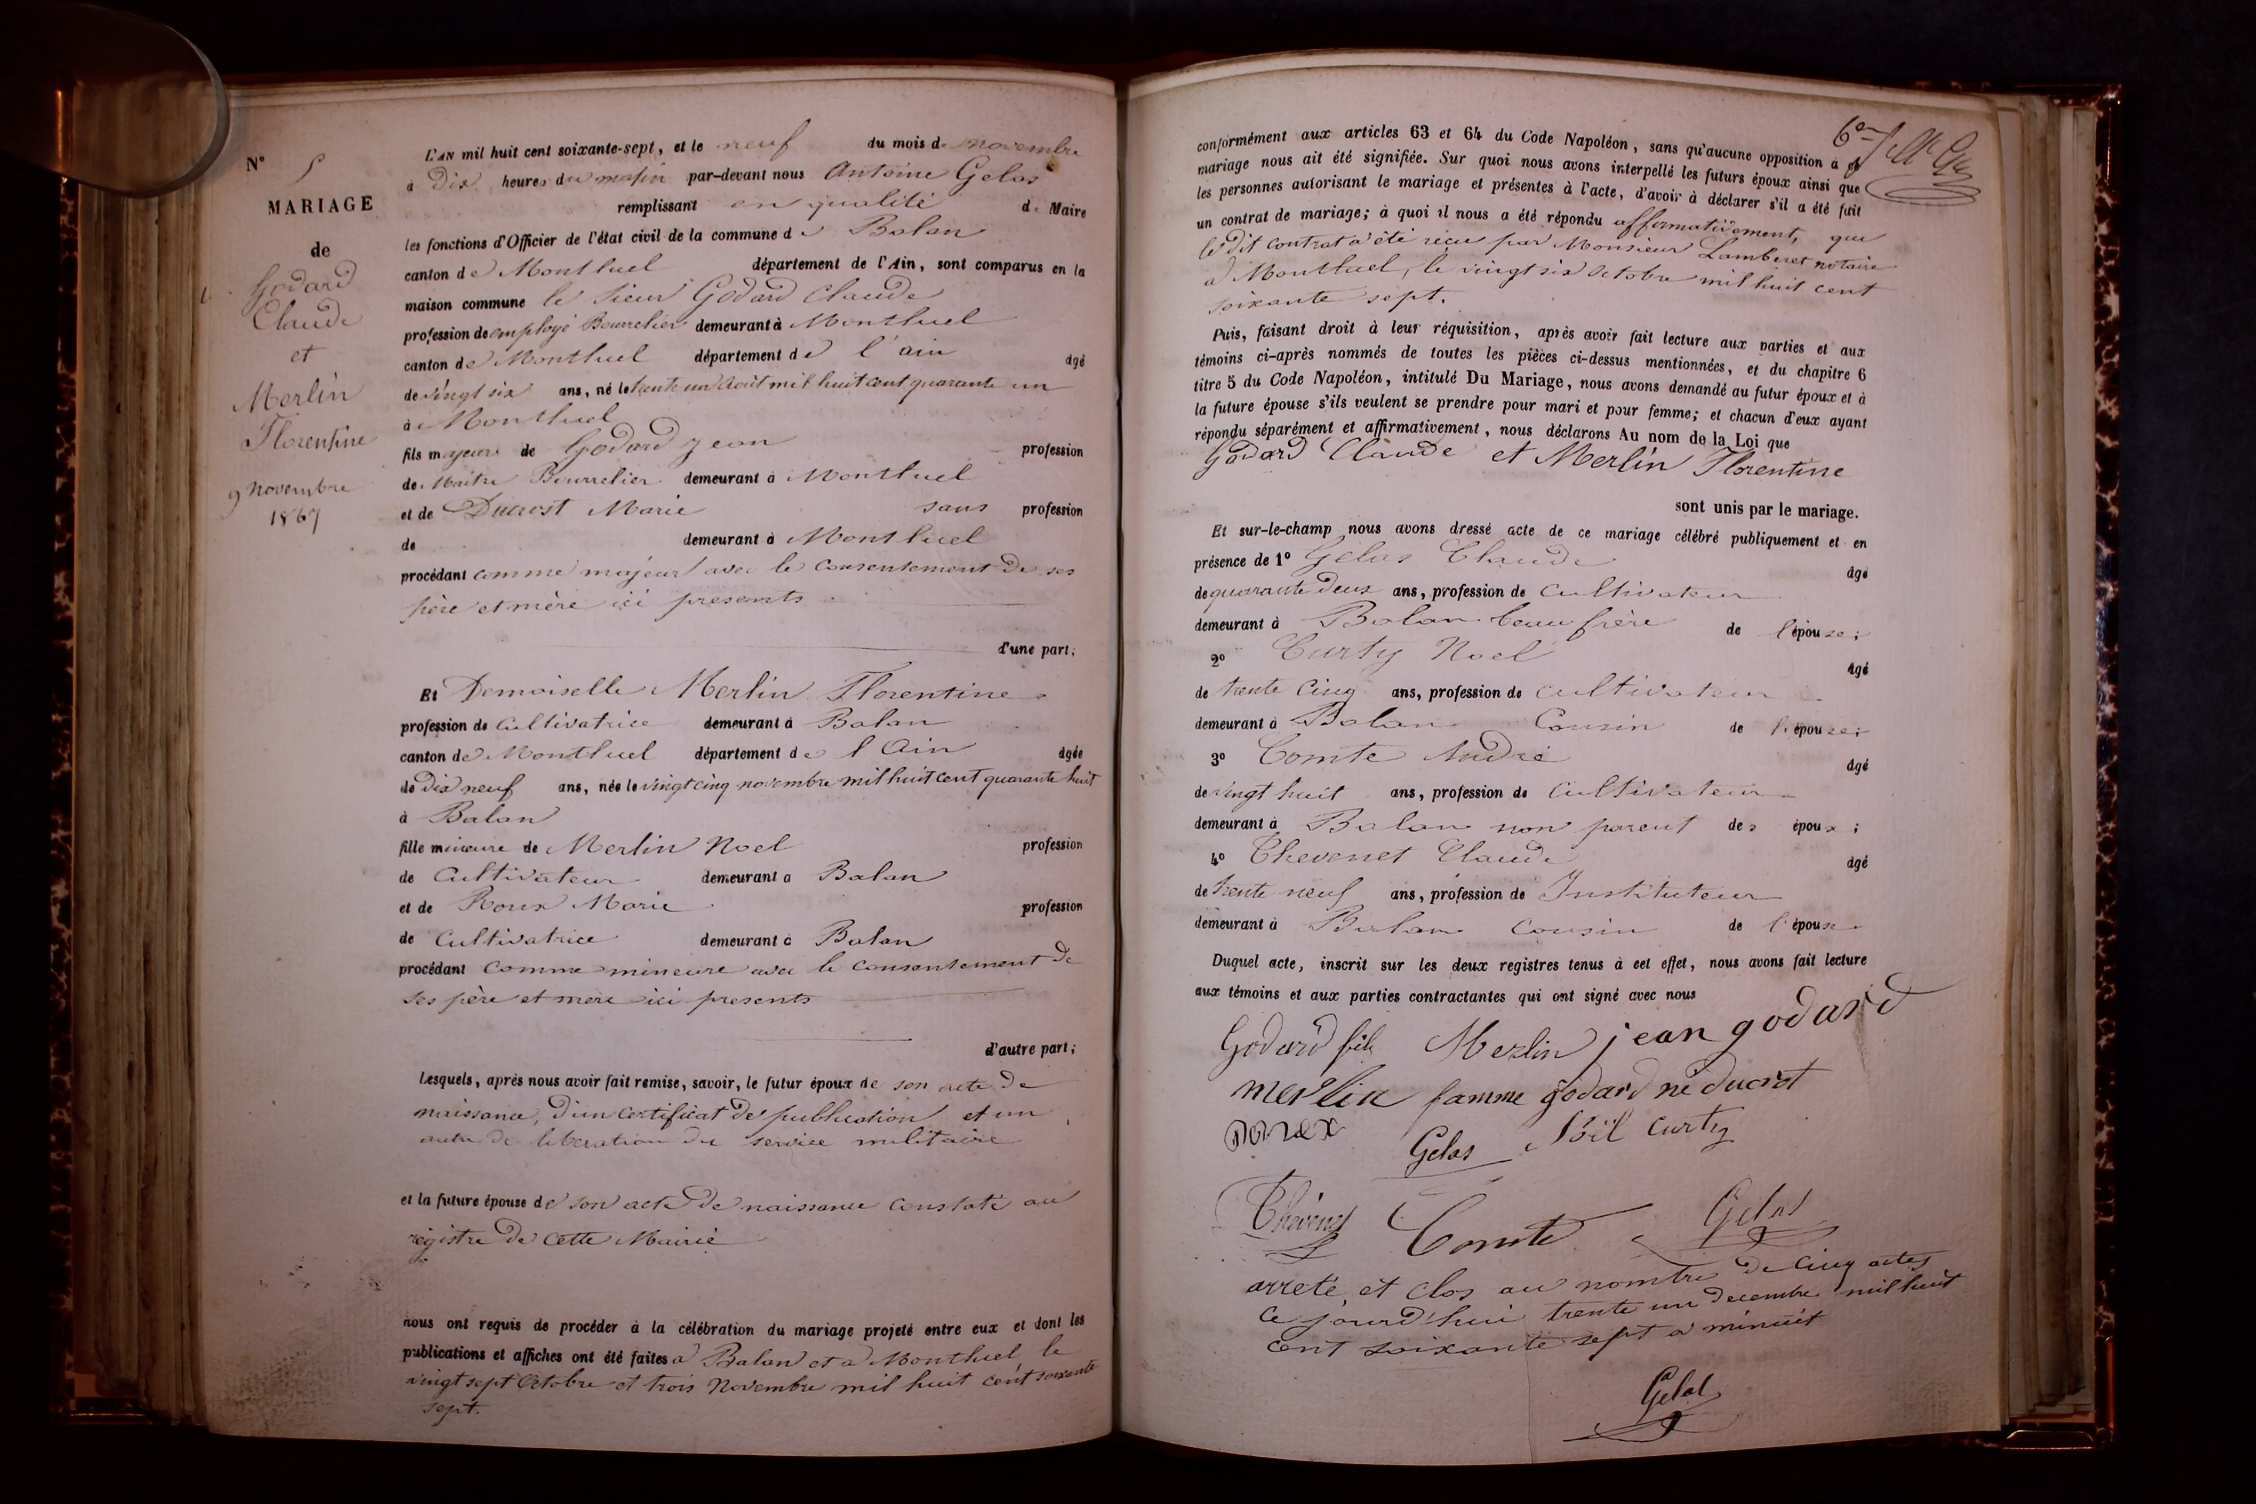 N° 5
MARIAGE
de
Godard
Claude
et
Merlin
Florentine
9 novembre
1867
L'AN mil huit cent soixante-sept, et le neuf du mois de novembre
à Dix heures du matin par-devant nous Antoine Gelas
remplissant en qualité de Maire
les fonctions d'Officier de l'état civil de la commune de Balan
canton de Montluel département de l'Ain, sont comparus en la
maison commune le sieur Godard Claude
profession de employé Bourrelier demeurant à Montluel
canton de Montluel département de l'ain âgé
de vingt six ans, né le trente un août mil huit cent quarante un
à Montluel
fils majeur de Godard jean profession
de Maître Bourrelier demeurant à Montluel
et de Ducrost Marie sans profession
de demeurant à Montluel
procédant comme majeur avec le consentement de ses
père et mère ici presents
d'une part;
Et Demoiselle Merlin Florentine
profession de Cultivatrice demeurant à Balan
canton de Montluel département de l'Ain âgée
de Dix neuf ans, née le vingt cinq novembre mil huit cent quarante huit
à Balan
fille mineure de Merlin Noel profession
de Cultivateur demeurant à Balan
et de Roux Marie profession
de Cultivatrice demeurant à Balan
procédant comme mineure avec le consentement de
ses père et mère ici presents
d'autre part;
Lesquels, après nous avoir fait remise, savoir, le futur époux de son acte de
naissance, d'un certificat de publication et un
autre de liberation du service militaire
et la future épouse de son acte de naissance constaté au
régistre de cette Mairie
nous ont requis de procéder à la célébration du mariage projeté entre eux et dont les
publications et affiches ont été faites à Balan et à Montluel le
vingt sept Octobre et trois Novembre mil huit cent soixante
sept.
conformément aux articles 63 et 64 du Code Napoléon, sans qu'aucune opposition à ce
mariage nous ait été signifiée. Sur quoi nous avons interpellé les futurs époux ainsi que
les personnes autorisant le mariage et présentes à l'acte, d'avoir à déclarer s'il a été fait
un contrat de mariage; à quoi il nous a été répondu affirmativement, que
le dit contrat a été reçu par Monsieur Lamberet notaire
à Montluel, le vingt six octobre mil huit cent
soixante sept.
Puis, faisant droit à leur réquisition, après avoir fait lecture aux parties et aux
témoins ci-après nommés de toutes les pièces ci-dessus mentionnées, et du chapitre 6
titre 5 du Code Napoléon, intitulé Du Mariage, nous avons demandé au futur époux et à
la future épouse s'ils veulent se prendre pour mari et pour femme; et chacun d'eux ayant
répondu séparément et affirmativement, nous déclarons Au nom de la Loi que
Godard Claude et Merlin Florentine
sont unis par le mariage.
Et sur-le-champ nous avons dressé acte de ce mariage célébré publiquement et en
présence de 1° Gelas Claude âgé
de quarante deux ans, profession de Cultivateur
demeurant à Balan beau frère de l'épouse;
2° Curty Noel âgé
de trente cinq ans, profession de cultivateur
demeurant à Balan Cousin de l'épouse;
3° Comte André âgé
de vingt huit ans, profession de Cultivateur
demeurant à Balan non parent des époux;
4° Thevenet Claude âgé
de trente neuf ans, profession de Instituteur
demeurant à Balan cousin de l'épouse
Duquel acte, inscrit sur les deux registres tenus à cet effet, nous avons fait lecture
aux témoins et aux parties contractantes qui ont signé avec nous
Godard fils Merlin jean godard
merlin famme godard né ducrot
Gelas Noël Curty
Thévenet Comte Gelas
arreté et clos au nombre de cinq actes
ce jourd'hui trente un decembre mil huit
cent soixante sept a minuit
Gelas